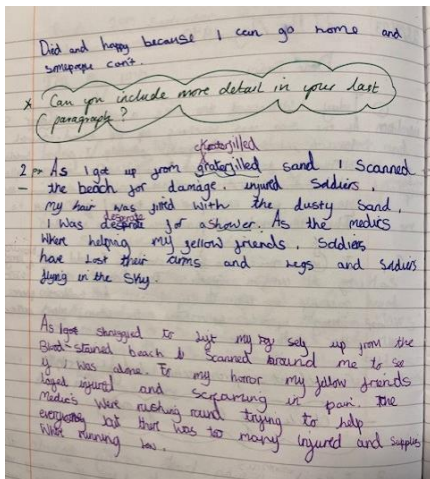 Died and happy because I can go home and
some people can't.
* Can you include more detail in your last
paragraph?
craterfilled
2 As I got up from graterfilled sand I scanned
the beach for damage, injured soldiers,
my hair was filled with the dusty sand,
desprate
I was desprate for a shower. As the medics
where helping my fellow friends. Soldiers
have lost their arms and legs and soldiers
flying in the sky.
As I got struggled to lift my self up from the
Blood-stained beach I scanned around me to see
if I was alone. To my horror my fellow friends
injured and screaming in pain. The
medic's were rushing round trying to help
everybody but there was too many injured and supplies
where running low.